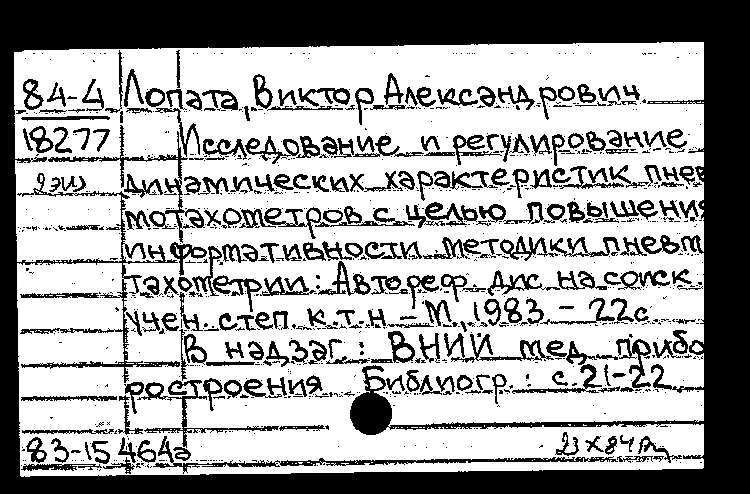 84-4 Лопата, Виктор Александрович.
18277 Исследование и регулирование
2 экз динамических характеристик пнев
мотахометров с целью повышения
информативности методики пневмо
тахометрии: Автореф. дис. на соиск.
учен. степ. к.т.н. – М., 1983 – 22с
В надзаг.: ВНИИ мед. прибо
ростроения Библиогр.: с. 21-22.
83-15464а 23 X 84